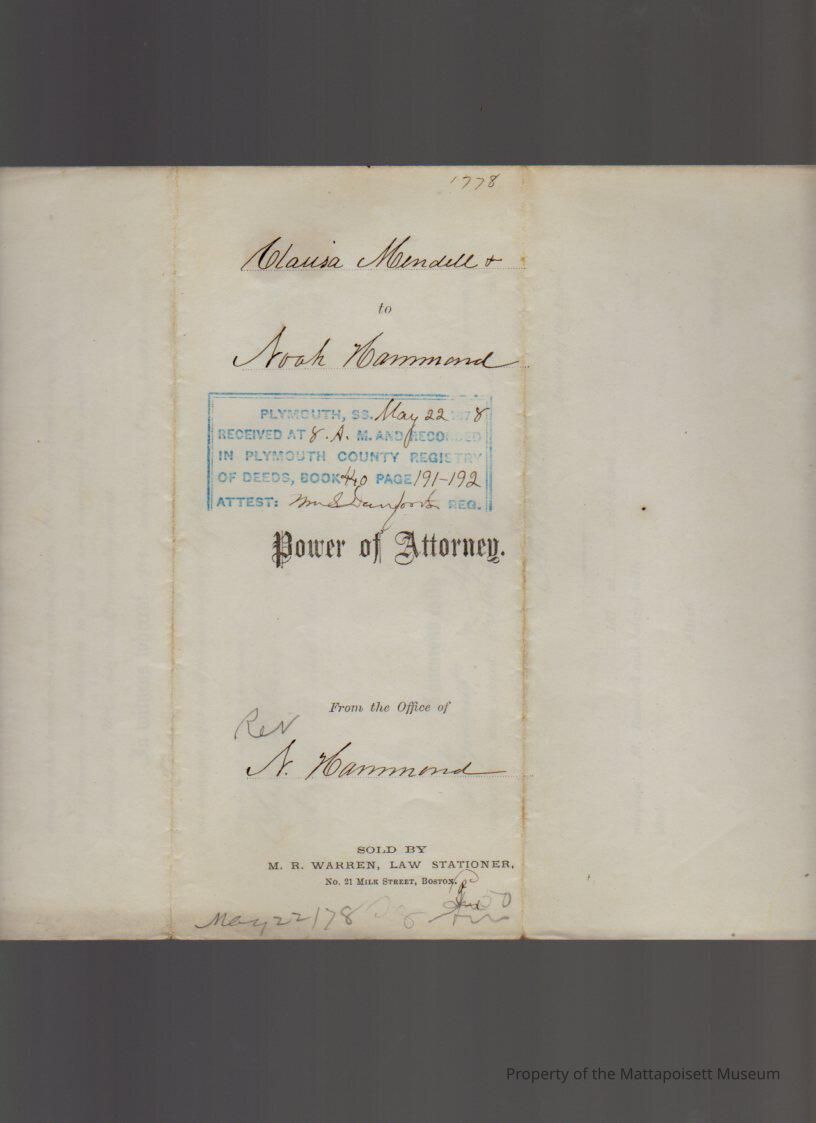 1778
Clarisa Mendell &
to
Noah Hammond
PLYMOUTH, SS. May 22 1878
RECEIVED AT 8. A. M. AND RECORDED
IN PLYMOUTH COUNTY REGISTRY
OF DEEDS, BOOK 440 PAGE 191-192
ATTEST: Wm S Danforth REG.
Power of Attorney.
From the Office of
N. Hammond
SOLD BY
M. R. WARREN, LAW STATIONER,
No. 21 MILK STREET, BOSTON.
May 22/78
50
Property of the Mattapoisett Museum